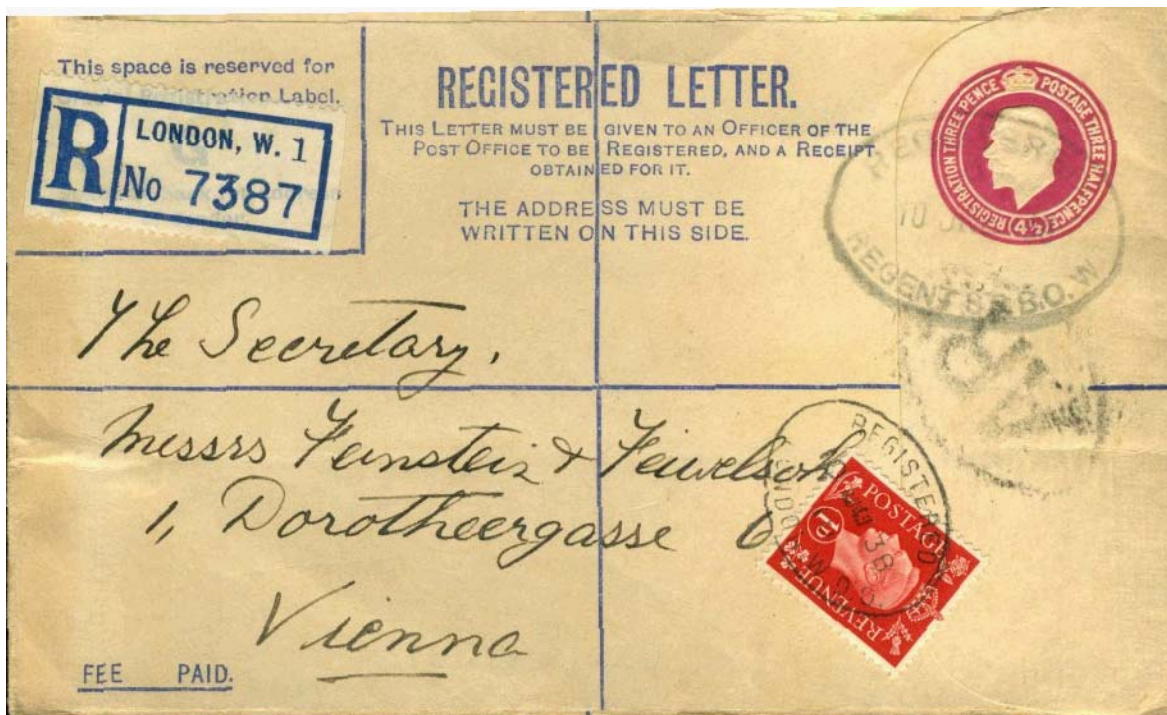 This space is reserved for
Registration Label.
R
LONDON, W. 1
No 7387
REGISTERED LETTER.
THIS LETTER MUST BE GIVEN TO AN OFFICER OF THE
POST OFFICE TO BE REGISTERED, AND A RECEIPT
OBTAINED FOR IT.
THE ADDRESS MUST BE
WRITTEN ON THIS SIDE.
REGISTRATION THREE PENCE POSTAGE THREE HALFPENCE
4½
10
REGENT ST B.O. W.
The Secretary,
Messrs Feinstein & Feiwelsohn
1, Dorotheergasse 6
Vienna
REGISTERED
38
POSTAGE
1D
REVENUE
FEE PAID.